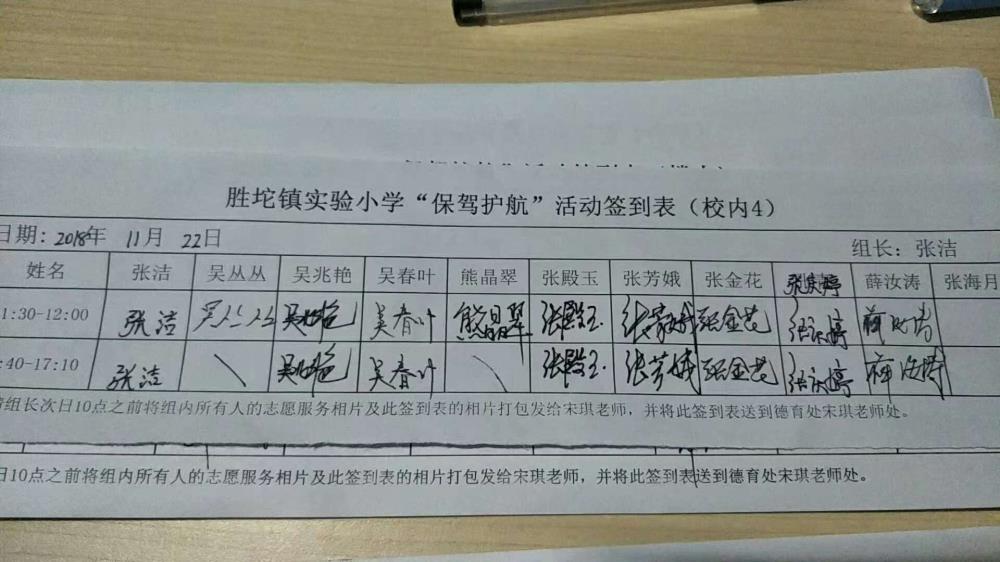 胜坨镇实验小学“保驾护航”活动签到表（校内4）
日期：2018年 11月 22日 组长：张洁
姓名 张洁 吴丛丛 吴兆艳 吴春叶 熊晶翠 张殿玉 张芳娥 张金花 张庆婷 薛汝涛 张海月
1:30-12:00 张洁 吴丛丛 吴兆艳 吴春叶 熊晶翠 张殿玉 张芳娥 张金花 张庆婷 薛汝涛
:40-17:10 张洁 吴兆艳 吴春叶 张殿玉 张芳娥 张金花 张庆婷 薛汝涛
请组长次日10点之前将组内所有人的志愿服务相片及此签到表的相片打包发给宋琪老师，并将此签到表送到德育处宋琪老师处。
日10点之前将组内所有人的志愿服务相片及此签到表的相片打包发给宋琪老师，并将此签到表送到德育处宋琪老师处。